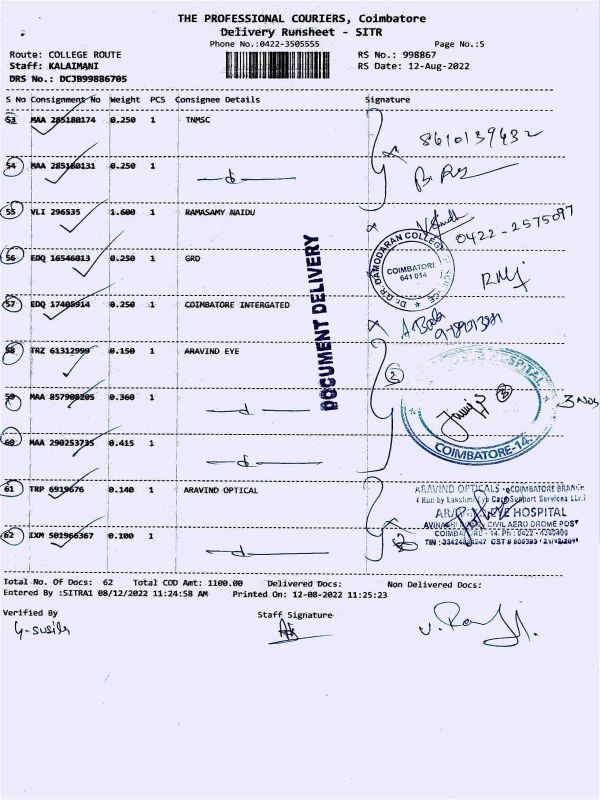 THE PROFESSIONAL COURIERS, Coimbatore
Delivery Runsheet - SITR
Phone No.:0422-3505555 Page No.:5
Route: COLLEGE ROUTE RS No.: 998867
Staff: KALAIMANI RS Date: 12-Aug-2022
DRS No.: DCJB99886705
S No Consignment No Weight PCS Consignee Details Signature
53 MAA 285180174 0.250 1 TNMSC
8610139432
54 MAA 285180131 0.250 1
55 VLI 296535 1.600 1 RAMASAMY NAIDU
0422-2575097
Dr. G.R. DAMODARAN COLLEGE
COIMBATORE
641 014
56 EDQ 16546013 0.250 1 GRD
57 EDQ 17405914 0.250 1 COIMBATORE INTERGATED
DOCUMENT DELIVERY
58 TRZ 61312999 0.150 1 ARAVIND EYE
2
HOSPITAL
3
3 Nos
COIMBATORE-14.
59 MAA 857908205 0.360 1
60 MAA 290253735 0.415 1
61 TRP 6919676 0.140 1 ARAVIND OPTICAL
ARAVIND OPTICALS - COIMBATORE BRANCH
( Run by Lakshmi Eye Care Support Services
EYE HOSPITAL
CIVIL AERO DROME POST
62 IXM 501966367 0.100 1
Total No. Of Docs: 62 Total COD Amt: 1100.00 Delivered Docs: Non Delivered Docs:
Entered By :SITRA1 08/12/2022 11:24:58 AM Printed On: 12-08-2022 11:25:23
Verified By Staff Signature
G-susila